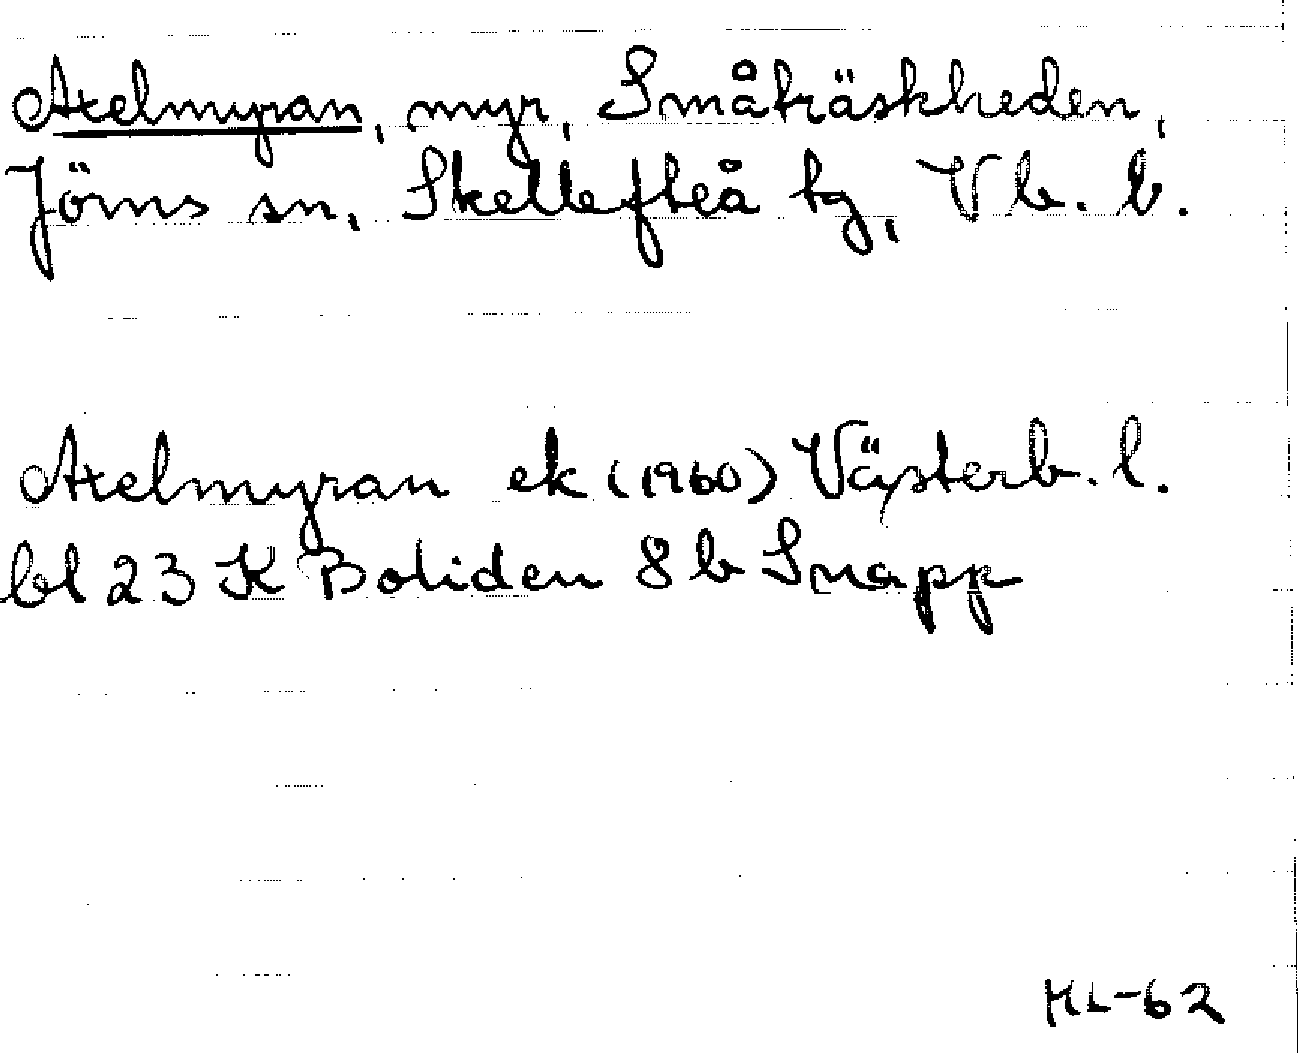 Axelmyran, myr, Småträskheden,
Jörns sn, Skellefteå tg, Vb. l.
Axelmyran ek (1960) Västerb. l.
bl 23 K Boliden 8 b Snapp
KL-62